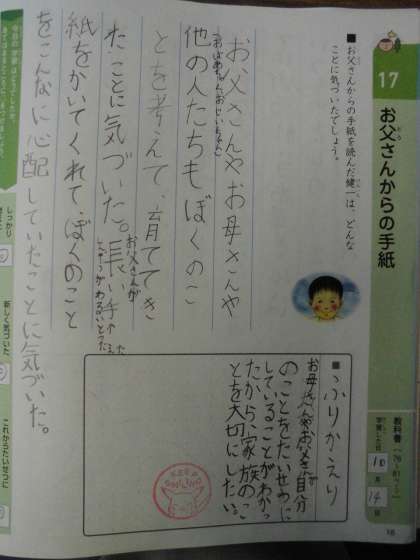 17
お父さんからの手紙
■お父さんからの手紙を読んだ健一は、どんな
ことに気づいたでしょう。
お父さんやお母さんや
他の人たちもぼくのこ
とを考えて、育ててき
たことに気づいた。長い手
お父さんが
紙をかいてくれて、ぼくのこと
をこんなに心配していたことに気づいた。
■ふりかえり
お母さんやお父さんが自分
のことをたいせつに
していることがわかっ
たから、家族のこ
とを大切にしたい。
教科書
学習した日
10
月
14
日
しっかり
新しく気づいた
これからたいせつに